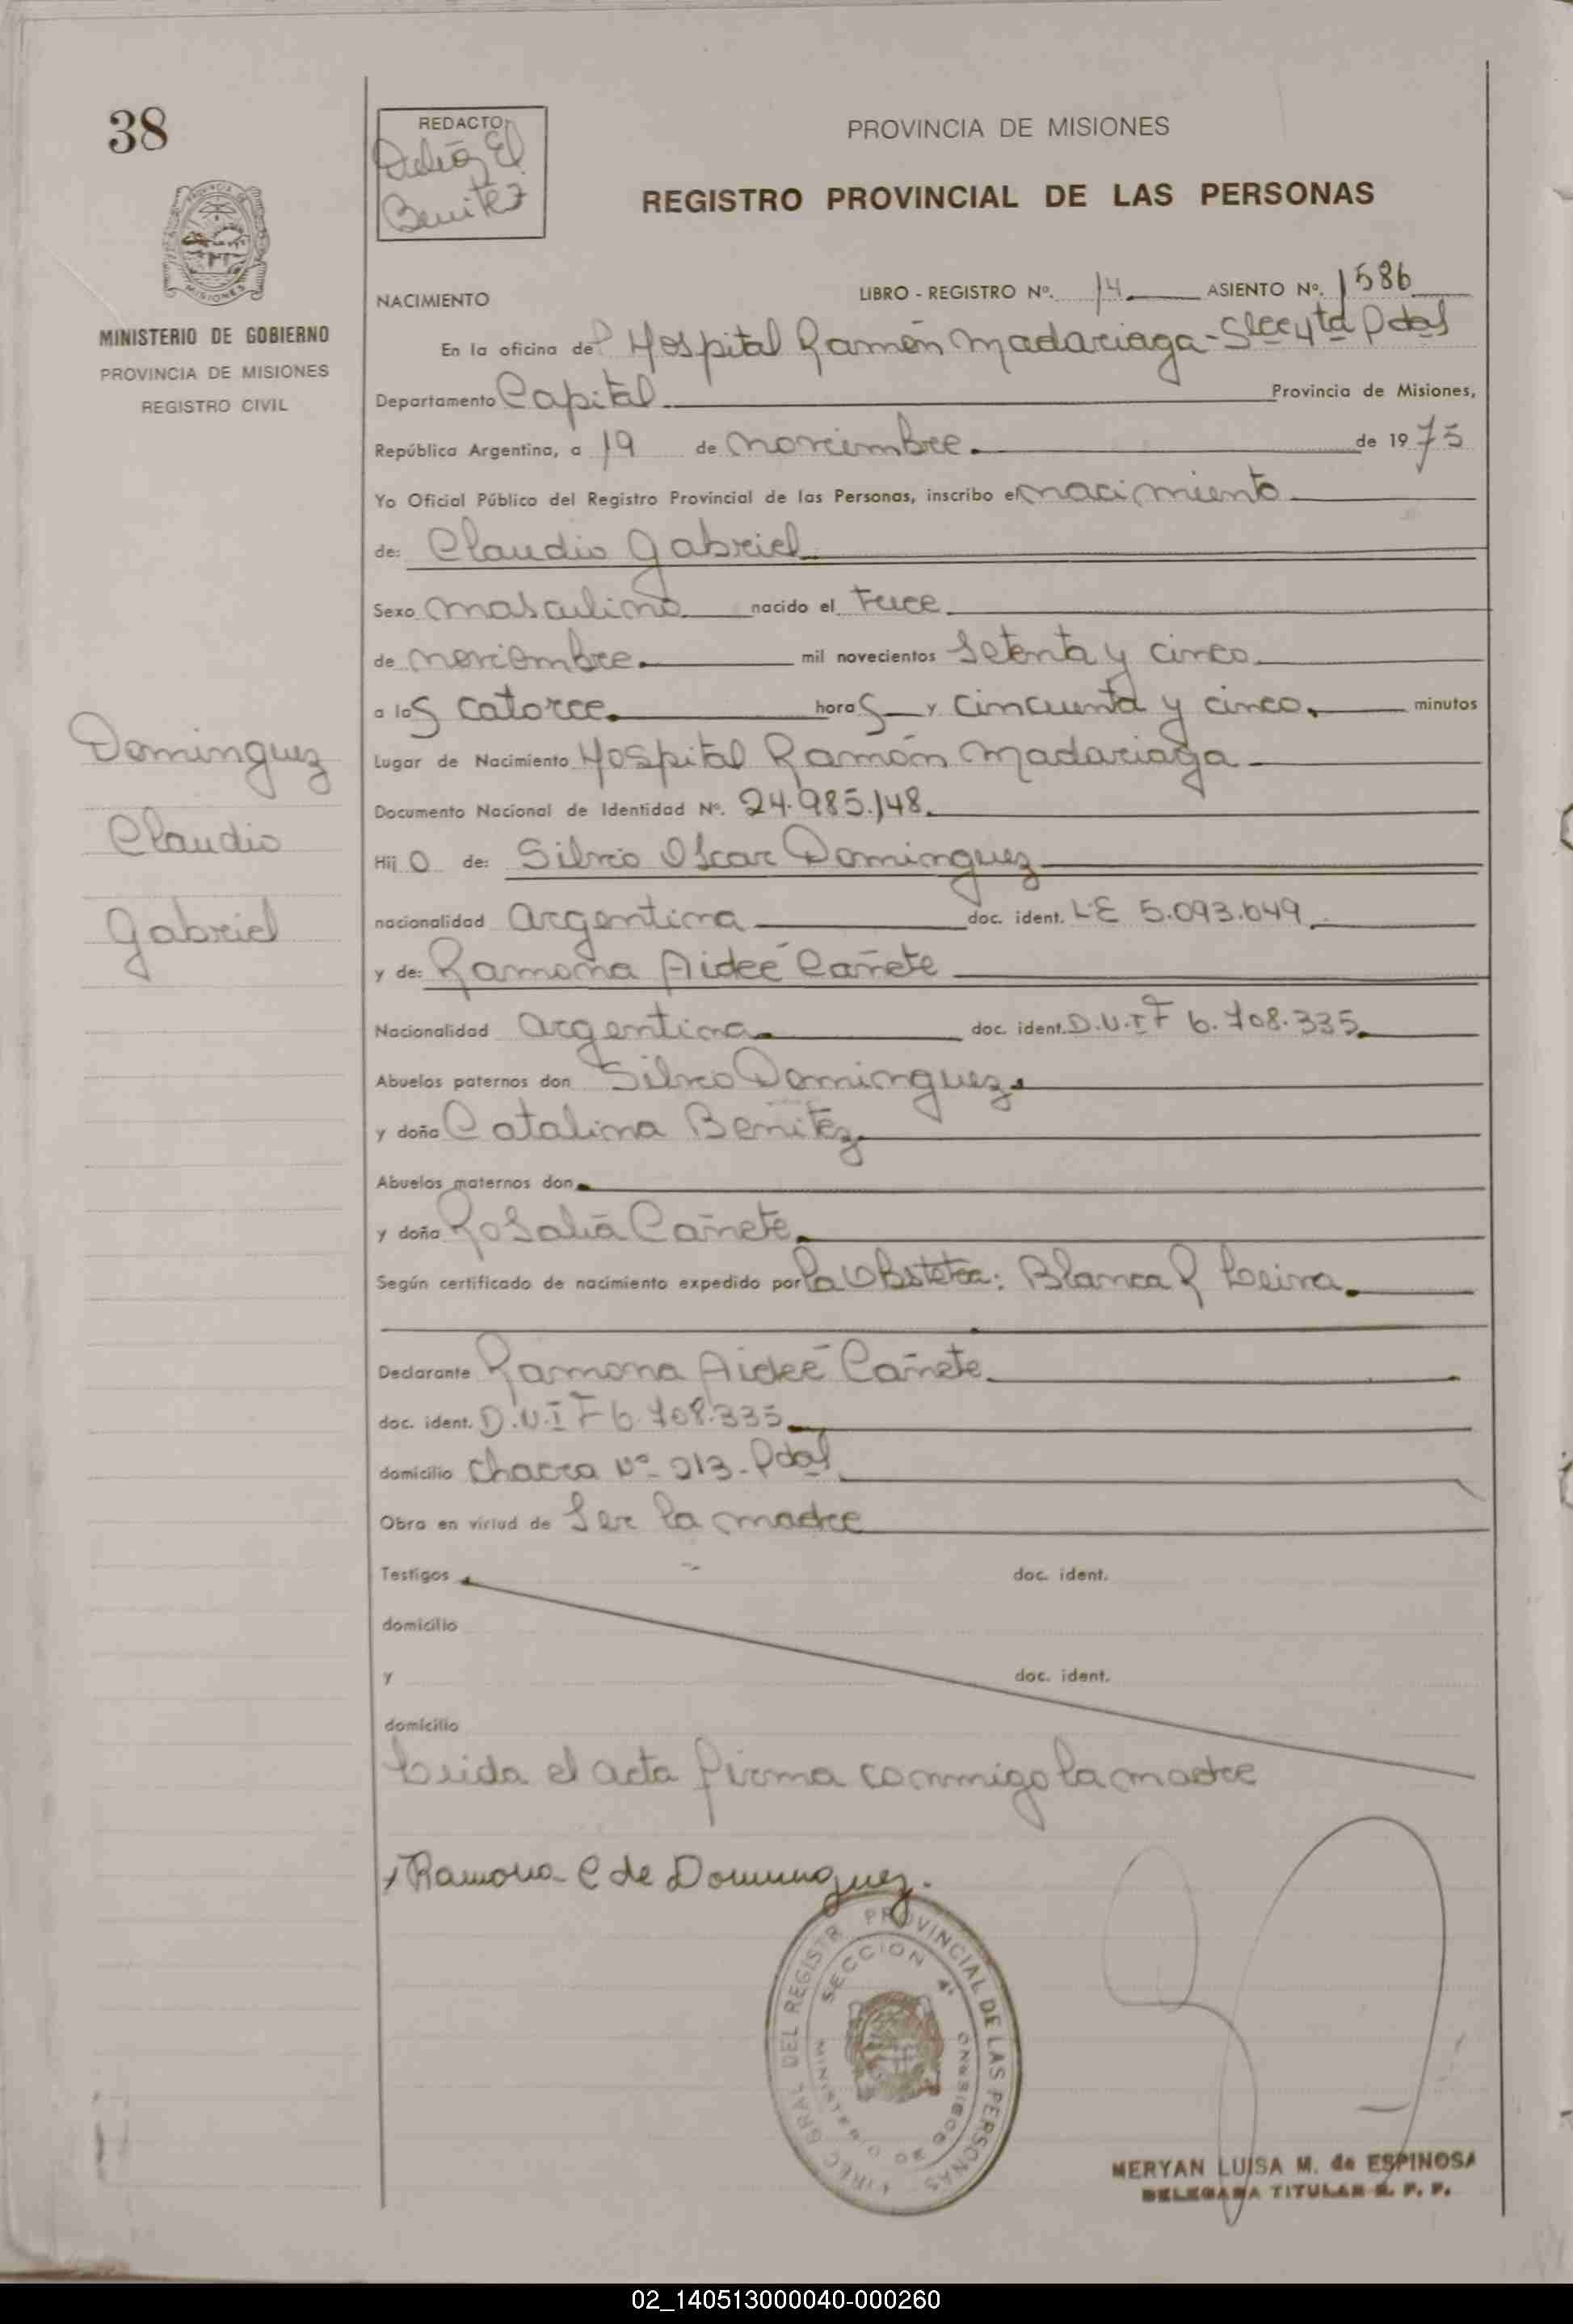 38
REDACTO:
Benitez
PROVINCIA DE MISIONES
REGISTRO PROVINCIAL DE LAS PERSONAS
MISIONES
MINISTERIO DE GOBIERNO
PROVINCIA DE MISIONES
REGISTRO CIVIL
NACIMIENTO
LIBRO - REGISTRO Nº. 14 ASIENTO Nº. 1586
En la oficina del Hospital Ramón Madariaga - Scc 4ta Pdas
Departamento Capital Provincia de Misiones,
República Argentina, a 19 de noviembre de 1975
Yo Oficial Público del Registro Provincial de las Personas, inscribo el nacimiento
de: Claudio Gabriel
Sexo masculino nacido el Trece
de noviembre mil novecientos Setenta y cinco
a las catorce horas y cincuenta y cinco minutos
Lugar de Nacimiento Hospital Ramón Madariaga
Documento Nacional de Identidad Nº. 24.985.148
Hijo de: Silvio Oscar Dominguez
nacionalidad argentina doc. ident. LE 5.093.649
y de: Ramona Aideé Cañete
Nacionalidad argentina doc. ident. D.U.I F 6.708.335
Abuelos paternos don Silvio Dominguez
y doña Catalina Benitez
Abuelos maternos don
y doña Rosalia Cañete
Según certificado de nacimiento expedido por la Obstetra: Blanca R Leiva
Declarante Ramona Aideé Cañete
doc. ident. D.U.I F 6.708.335
domicilio Chacra Nº 213 - Pdas
Obra en virtud de Ser la madre
Testigos doc. ident.
domicilio
y doc. ident.
domicilio
Leida el acta firma conmigo la madre
Ramona C de Dominguez.
Dominguez
Claudio
Gabriel
DIREC GRAL DEL REGISTR PROVINCIAL DE LAS PERSONAS
SECCION 4ª
MINISTERIO DE GOBIERNO
MERYAN LUISA M. de ESPINOSA
DELEGADA TITULAR R. P. P.
02_140513000040-000260